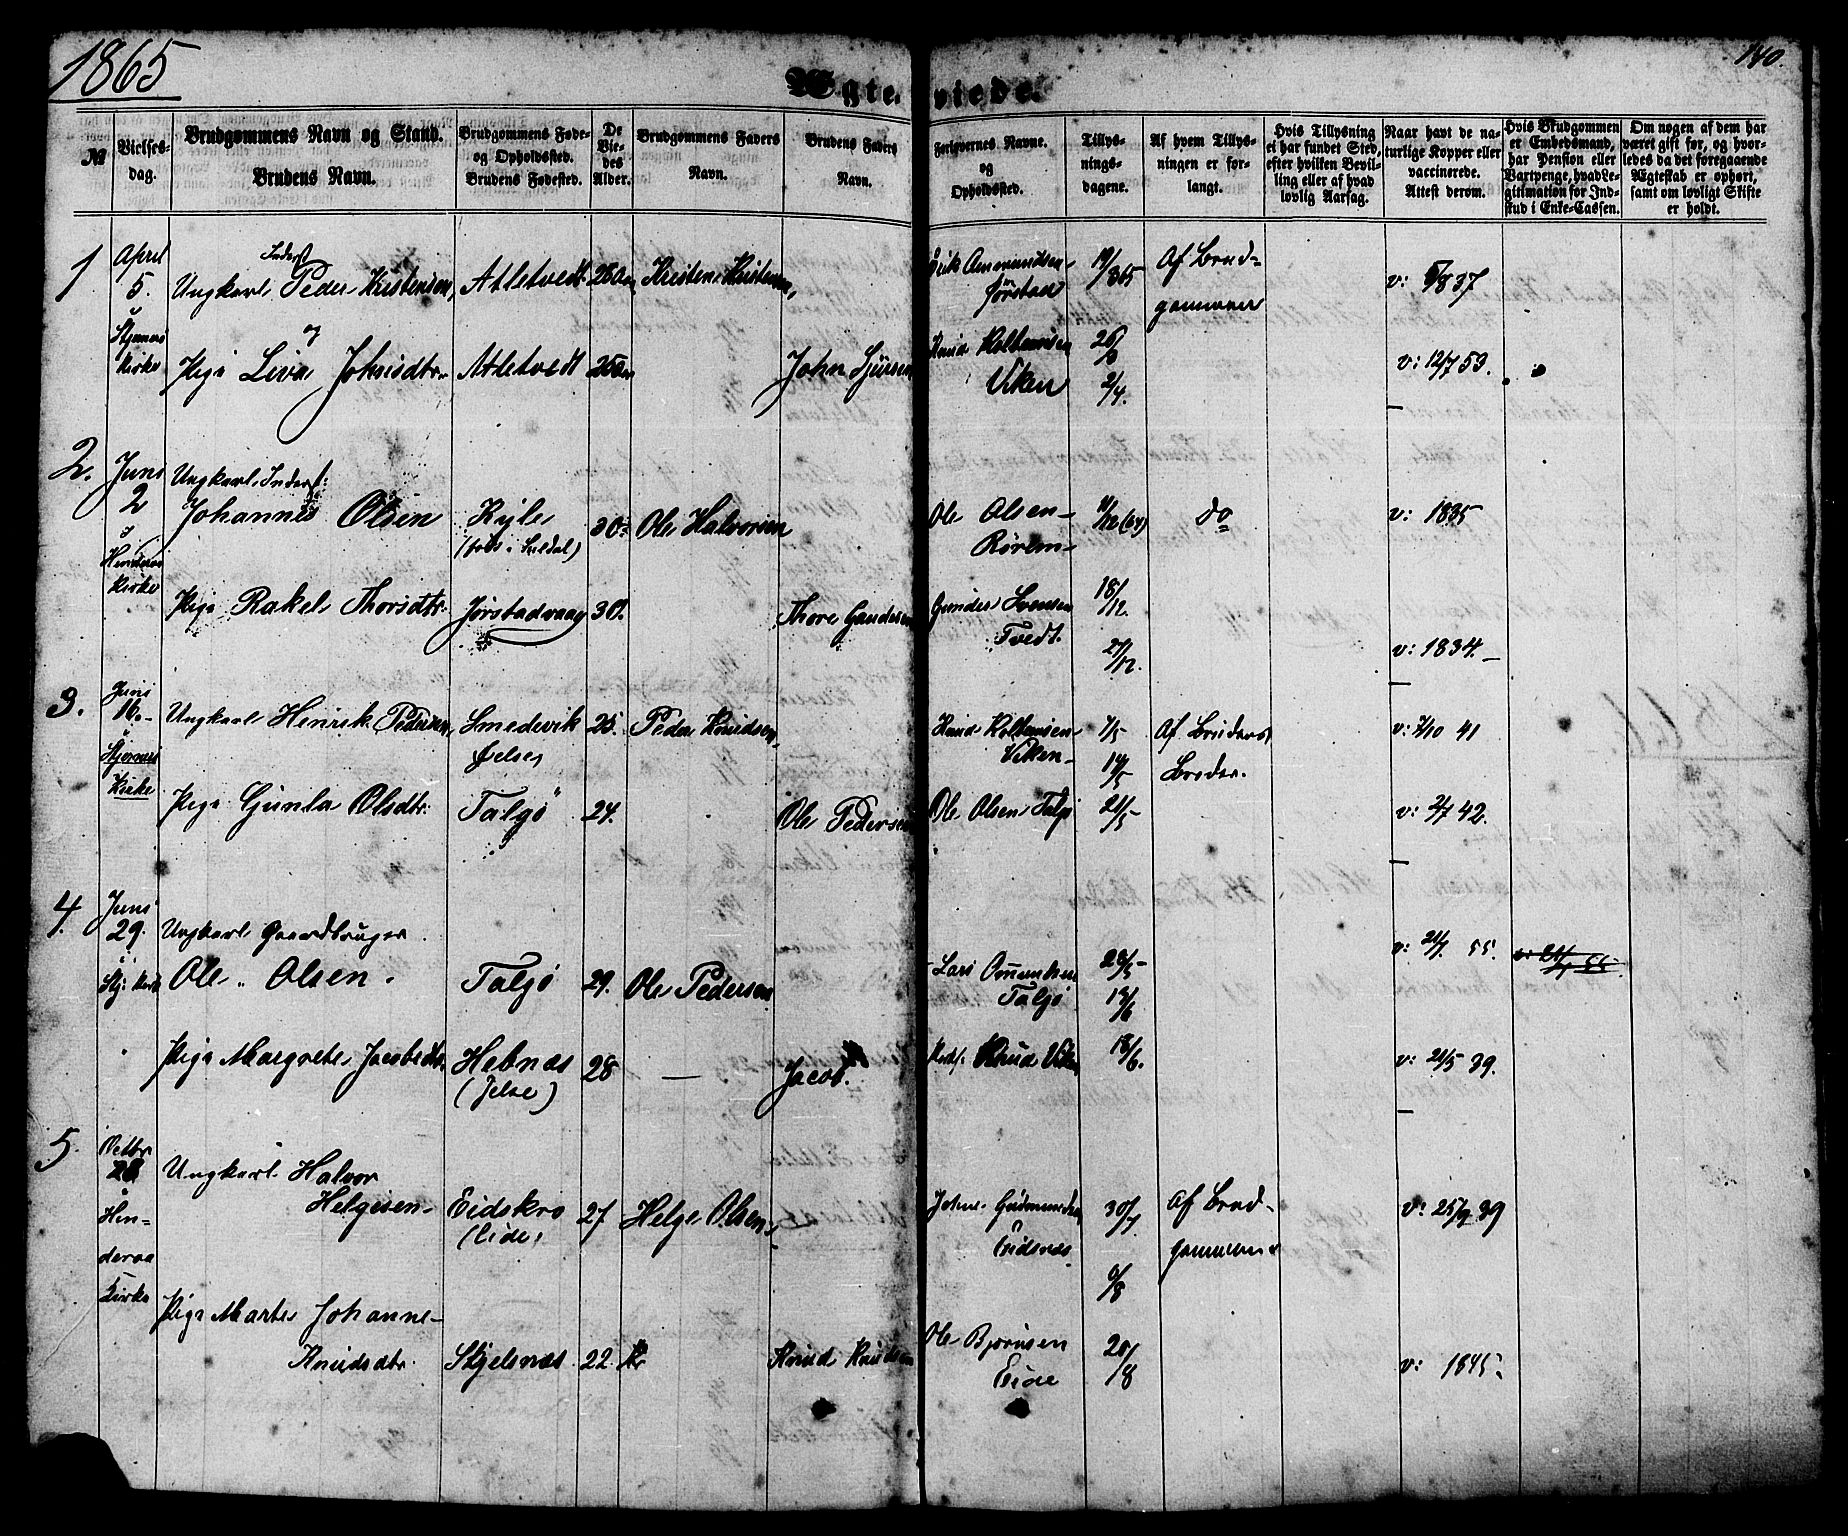 1865
140.
Ægte-viede.
№
Vielses-
dag.
Brudgommens Navn og Stand.
Brudens Navn.
Brudgommens Føde-
og Opholdssted.
Brudens Fødested.
De
Vie-
des
Alder.
Brudgommens Faders
Navn.
Brudens Faders
Navn.
Forlovernes Navne.
og
Opholdssted.
Tillys-
nings-
dagene.
Af hvem Tillys-
ningen er for-
langt.
Hvis Tillysning
ei har fundet Sted,
efter hvilken Bevil-
ling eller af hvad
lovlig Aarsag.
Naar havt de na-
turlige Kopper eller
vaccinerede.
Attest derom.
Hvis Brudgommen
er Embedsmand,
har Pension eller
Vartpenge, hvad Le-
gitimation for Ind-
skud i Enke-Cassen.
Om nogen af dem har
været gift før, og hvor-
ledes da det foregaaende
Ægteskab er ophørt,
samt om lovligt Skifte
er holdt.
1
April
5.
Kirke
Inderst
Ungkarl Peder Kristensen, Atletvedt
Kristen Kristensen,
Amundsen
Jørstad
19/3 65
Af Brud-
gommen
v: 5/8 37
Pige Liva Johnsdtr. Atletvedt
John Sjursen
Knud Kolbensen
Viken
26/3
2/4.
v: 12/7 53.
2.
Juni
2
Kirke
Ungkarl Inderst:
Johannes Olsen
30
Ole Halvorsen
Ole Olsen
11/12 (64)
do
v: 1835
Pige Rakel Thorsdtr. Jørstadvaag 30.
Thore Gaudesen
Gunder Svensen
Tvedt.
18/12.
27/12.
v: 1834.
3.
Juni
16.
Kirke
Ungkarl Henrik Pedersen, Smedevik 25. Peder Knudsen,
Jelse
Knud Kolbensen
Viken
7/5
14/5
Af Brudens
Broder.
v: 7/10 41
Pige Gunla Olsdtr. Talgø 24.
Ole Pedersen
Ole Olsen Talgø
21/5
v: 2/7 42.
4.
Juni
29.
Ungkarl Gaardbruger
Ole Olsen. Talgø 29. Ole Pedersen
Lars
Talgø
28/5
v: 21/7 55.
Pige Margrete Jacobsdtr. Hebnæs 28 —
(Jelse)
Jacob.
Knud Viken
18/6.
v: 21/5 39.
5.
Octbr
28
i
Hin-
deraa
Kirke
Ungkarl Halvor
Helgesen Eidskro 27 Helge Olsen
(Eide)
Gudmundsen
Eidsnæs
30/7.
6/8
Af Brud-
gommen
v: 25/9 39
Pige Marte Johanne
Knudsdtr. Skjelsnæs 22.
Knud Knudsen
Ole Bjørnsen
Eide
20/8
v: 1845.